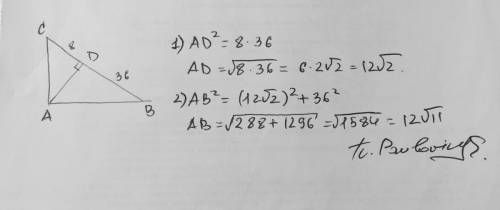 C
8
D
36
A
B
1) AD² = 8·36
AD = √8·36 = 6·2√2 = 12√2.
2) AB² = (12√2)² + 36²
AB = √288+1296 = √1584 = 12√11